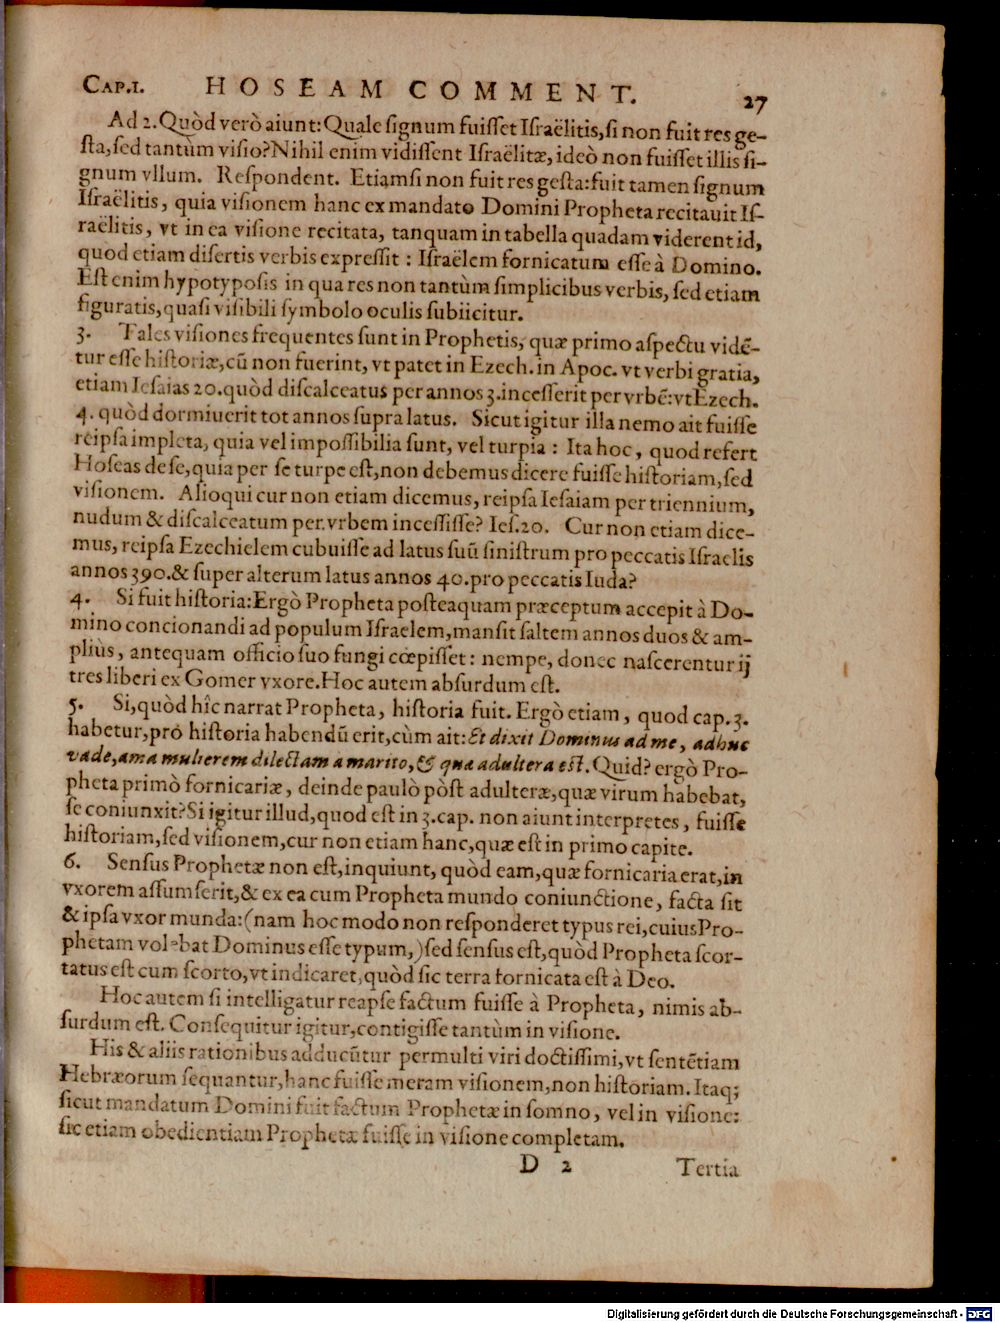 CAP.I. HOSEAM COMMENT. 27
Ad 2. Quòd verò aiunt: Quale signum fuiſſet Iſraëlitis, ſi non fuit res ge-
ſta, ſed tantùm viſio? Nihil enim vidiſſent Iſraëlitæ, ideò non fuiſſet illis ſi-
gnum vllum. Reſpondent. Etiamſi non fuit res geſta: fuit tamen signum
Iſraëlitis, quia viſionem hanc ex mandato Domini Propheta recitauit Iſ-
raëlitis, vt in ea viſione recitata, tanquam in tabella quadam viderent id,
quod etiam diſertis verbis expreſſit: Iſraëlem fornicatum eſſe à Domino.
Eſt enim hypotypoſis in qua res non tantùm ſimplicibus verbis, ſed etiam
figuratis, quaſi viſibili ſymbolo oculis ſubiicitur.
3. Tales viſiones frequentes ſunt in Prophetis, quæ primo aſpectu vidē-
tur eſſe hiſtoriæ, cū non fuerint, vt patet in Ezech. in Apoc. vt verbi gratia,
etiam Ieſaias 20. quòd diſcalceatus per annos 3. inceſſerit per vrbē: vt Ezech.
4. quòd dormiuerit tot annos ſupra latus. Sicut igitur illa nemo ait fuiſſe
reipſa impleta, quia vel impoſſibilia ſunt, vel turpia: Ita hoc, quod refert
Hoſeas de ſe, quia per ſe turpe eſt, non debemus dicere fuiſſe hiſtoriam, ſed
viſionem. Alioqui cur non etiam dicemus, reipſa Ieſaiam per triennium,
nudum & diſcalceatum per vrbem inceſſiſſe? Ieſ.20. Cur non etiam dice-
mus, reipſa Ezechielem cubuiſſe ad latus ſuū ſiniſtrum pro peccatis Iſraelis
annos 390. & ſuper alterum latus annos 40. pro peccatis Iuda?
4. Si fuit hiſtoria: Ergò Propheta poſteaquam præceptum accepit à Do-
mino concionandi ad populum Iſraelem, manſit ſaltem annos duos & am-
pliùs, antequam officio ſuo fungi cœpiſſet: nempe, donec naſcerentur ij
tres liberi ex Gomer vxore. Hoc autem abſurdum eſt.
5. Si, quòd hîc narrat Propheta, hiſtoria fuit. Ergò etiam, quod cap. 3.
habetur, pro hiſtoria habendū erit, cùm ait: Et dixit Dominus ad me, adhuc
vade, ama mulierem dilectam a marito, & quæ adultera eſt. Quid? ergò Pro-
pheta primò fornicariæ, deinde paulò pòſt adulteræ, quæ virum habebat,
ſe coniunxit? Si igitur illud, quod eſt in 3. cap. non aiunt interpretes, fuiſſe
hiſtoriam, ſed viſionem, cur non etiam hanc, quæ eſt in primo capite.
6. Senſus Prophetæ non eſt, inquiunt, quòd eam, quæ fornicaria erat, in
vxorem aſſumſerit, & ex ea cum Propheta mundo coniunctione, facta ſit
& ipſa vxor munda: (nam hoc modo non reſponderet typus rei, cuius Pro-
phetam volebat Dominus eſſe typum,) ſed ſenſus eſt, quòd Propheta ſcor-
tatus eſt cum ſcorto, vt indicaret, quòd ſic terra fornicata eſt à Deo.
Hoc autem ſi intelligatur reapſe factum fuiſſe à Propheta, nimis ab-
ſurdum eſt. Conſequitur igitur, contigiſſe tantùm in viſione.
His & aliis rationibus adducūtur permulti viri doctiſſimi, vt ſentētiam
Hebræorum ſequantur, hanc fuiſſe meram viſionem, non hiſtoriam. Itaq;
ſicut mandatum Domini fuit factum Prophetæ in ſomno, vel in viſione:
ſic etiam obedientiam Prophetæ fuiſſe in viſione completam.
D 2 Tertia
Digitalisierung gefördert durch die Deutsche Forschungsgemeinschaft - DFG